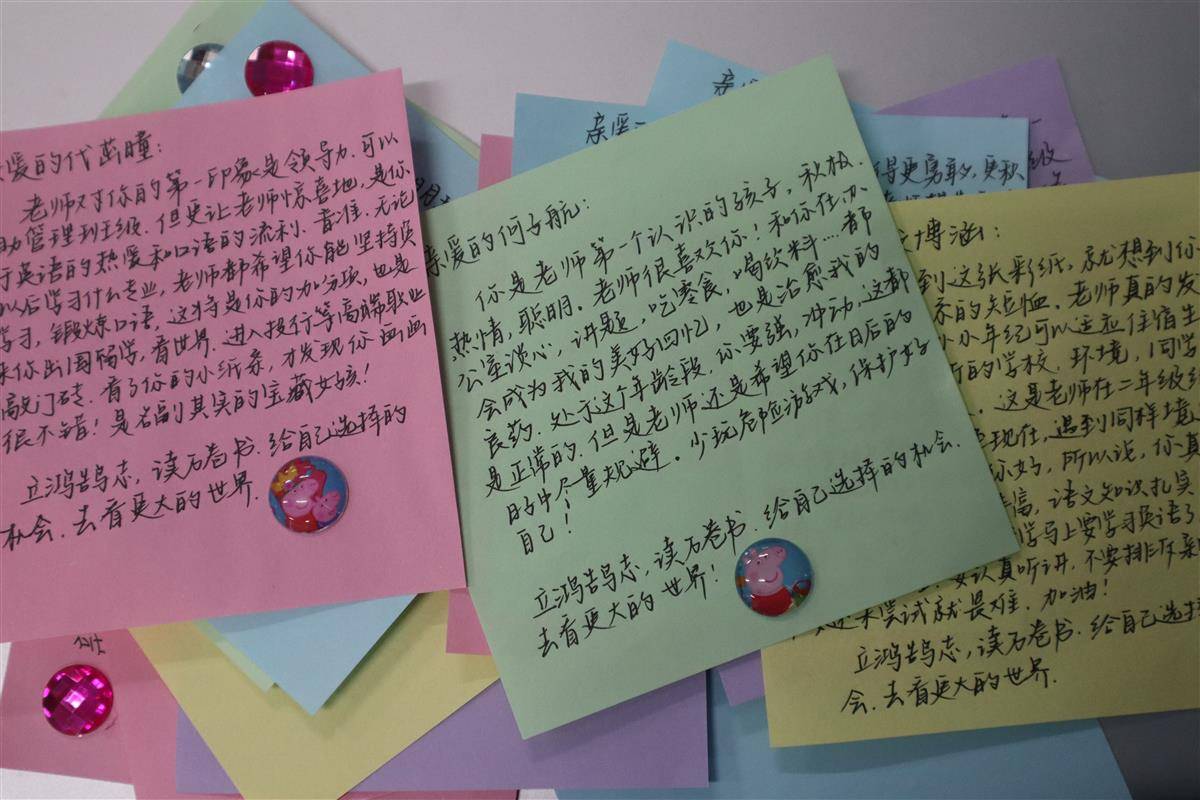 爱的代茜瞳:
老师对你的第一印象是领导力.可以
助管理班级.但更让老师惊喜地,是你
于英语的热爱和口语的流利、音准.无论
以后学习什么专业,老师都希望你能坚持英
学习,锻炼口语,这将是你的加分项,也是
来你出国留学,看世界.进入投行等高端职业
敲门砖.有了你的小纸条,才发现你画画
很不错!是名副其实的宝藏女孩!
立鸿鹄志,读万卷书.给自己选择的
机会.去看更大的世界.
亲爱的何子航:
你是老师第一个认识的孩子,积极.
热情,聪明.老师很喜欢你!和你在办
公室谈心,讲题,吃零食,喝饮料...都
会成为我的美好回忆,也是治愈我的
良药.处于这个年龄段.你要强,冲动,这都
是正常的.但是老师还是希望你在日后的
日子中尽量规避.少玩危险游戏,保护好
自己!
立鸿鹄志,读万卷书.给自己选择的机会.
去看更大的世界!
博涵:
到这张彩纸,就想到你
的短恤.老师真的发
小小年纪可以主动住宿生
的学校.环境,同学
这是老师在二年级
现在,遇到同样境
你好,所以说,你真
高,语文知识扎实
学马上要学习英语了
要认真听讲.不要排斥新
还未尝试就畏难.加油!
立鸿鹄志,读万卷书.给自己选择
会.去看更大的世界.
亲爱
得更勇敢,更积
级